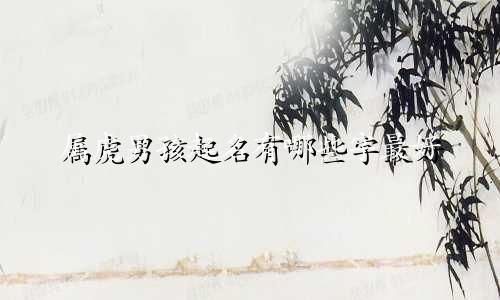 属虎男孩起名有哪些字最好